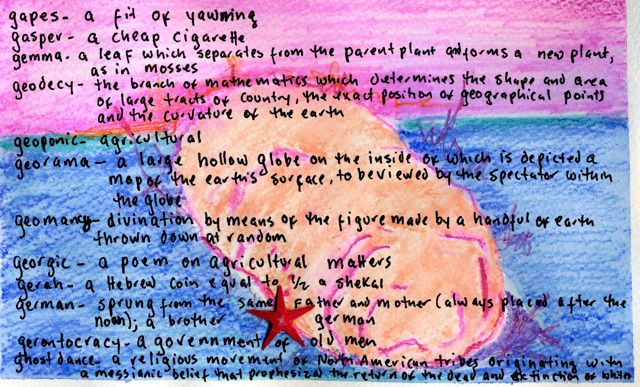 gapes - a fit of yawning
gasper - a cheap cigarette
gemma - a leaf which separates from the parent plant and forms a new plant,
as in mosses
geodecy - the branch of mathematics which determines the shape and area
of large tracts of country, the exact position of geographical points
and the curvature of the earth
geoponic - agricultural
georama - a large hollow globe on the inside of which is depicted a
map of the earth's surface, to be viewed by the spectator within
the globe
geomancy - divination by means of the figure made by a handful of earth
thrown down at random
georgic - a poem on agricultural matters
gerah - a Hebrew coin equal to 1/2 a shekal
german - sprung from the same father and mother (always placed after the
noun); a brother german
gerontocracy - a government of old men
ghost dance - a religious movement of North American tribes originating with
a messianic belief that prophesized the return of the dead and extinction of whites